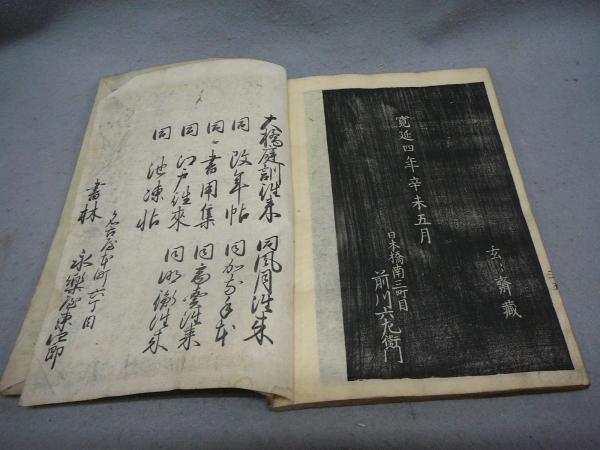 玄々齋藏
寛延四年辛未五月
日本橋南三町目
前川六左衛門
大橋庭訓往来 同風月往来
同 改年帖 同 手本
同 書用集 同 雲往来
同 江戸往来 同明衡往来
同 池凍帖
名古屋本町六丁目
書林 永樂屋東四郎